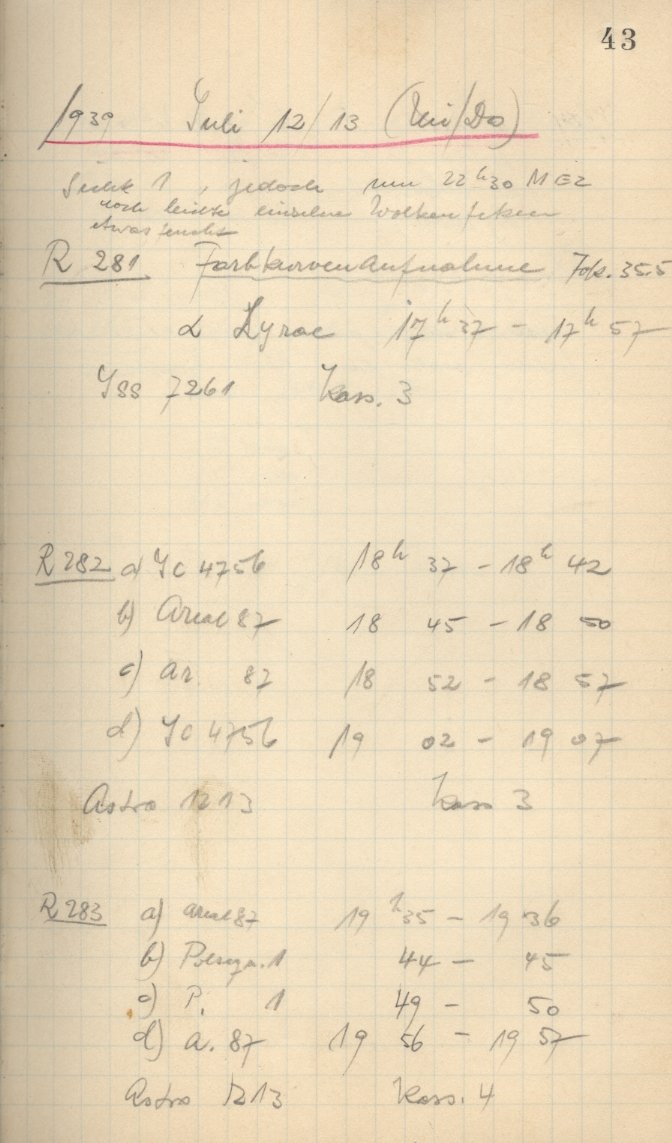 43
1939 Juli 12/13 (Mi/Do)
Sicht 1, jedoch um 22 h 30 MEZ
noch leichte einzelne Wolkenfetzen
etwas feucht
R 281 Farbkurvenaufnahme Fok. 35.5
α Lyrae 17 h 37 - 17 h 57
ISS 7261 Kass. 3
R 282 a) Ic 4756 18 h 37 - 18 h 42
b) Areal 87 18 45 - 18 50
c) Ar. 87 18 52 - 18 57
d) Ic 4756 19 02 - 19 07
Astro 1213 Kass 3
R 283 a) Areal 87 19 h 35 - 19 36
b) 1 44 - 45
c) P. 1 49 - 50
d) A. 87 19 56 - 19 57
Astro 1213 Kass. 4